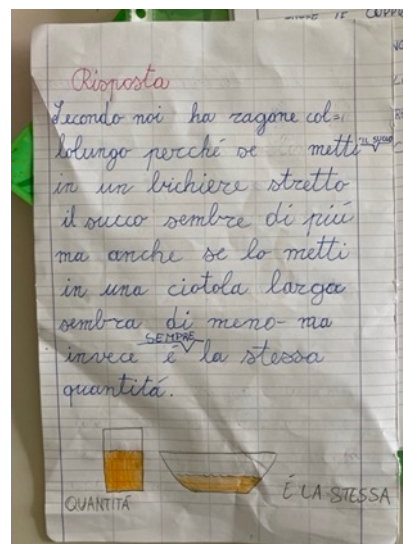 Risposta
Secondo noi ha ragone col=
lolungo perché se metti il succo
in un bichiere stretto
il succo sembre di piú
ma anche se lo metti
in una ciotola larga
sembra di meno- ma
invece SEMPRE é la stessa
quantitá.
QUANTITÁ É LA STESSA